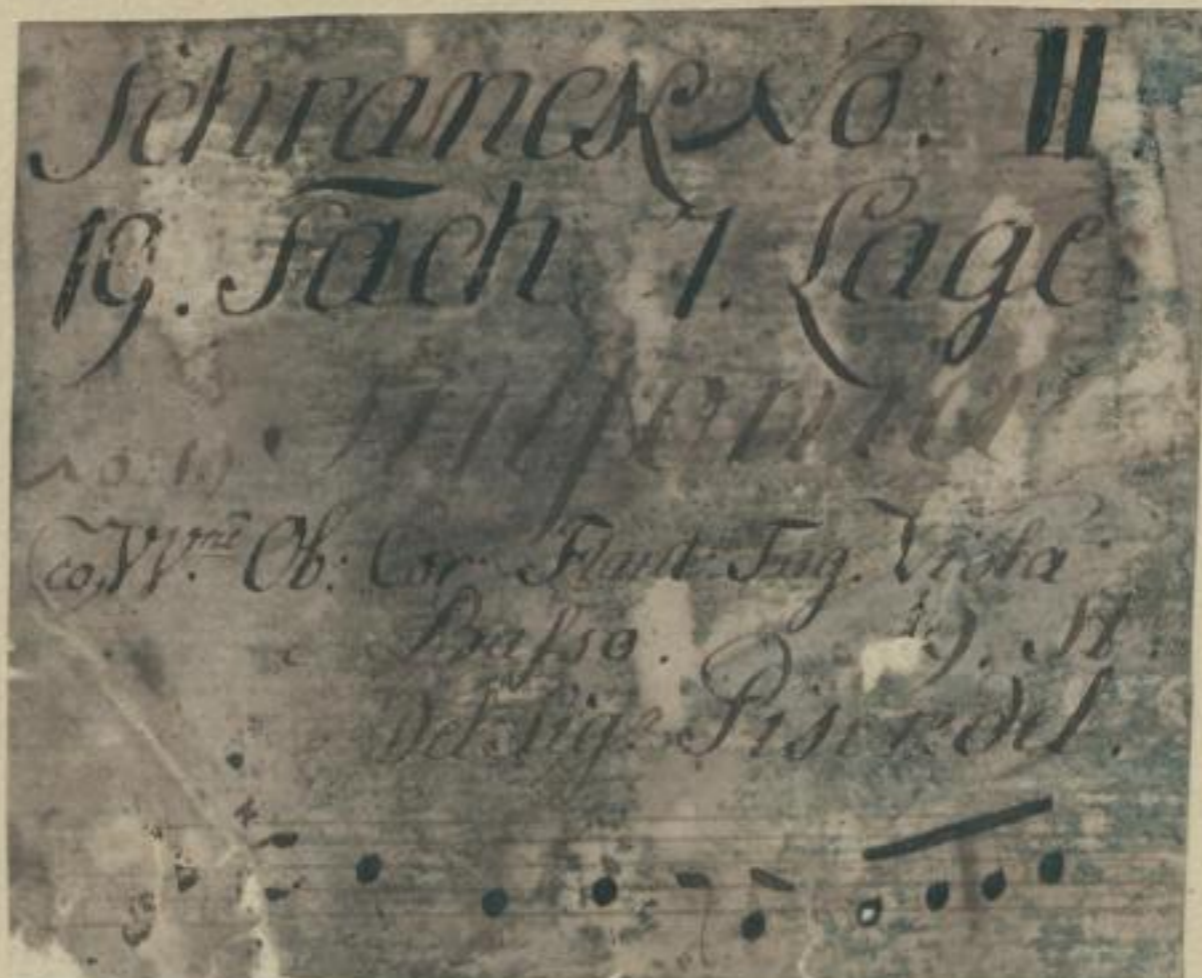 Schranck No: II.
19. Fach 7. Lage
co VV.ni Ob: Cor: Flaut: Fag. Viola
Basso. 19. St:
Del Sig.e Pisendel.